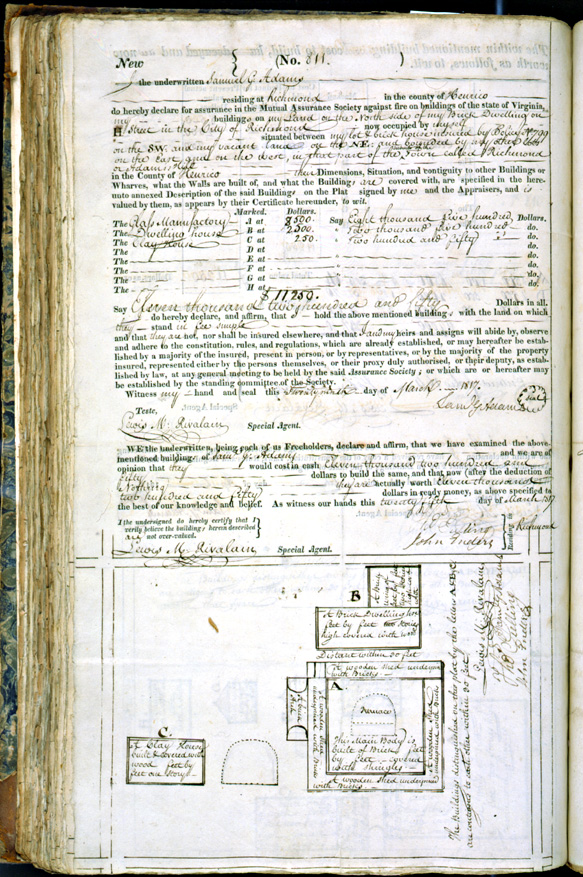 New (No. 811. )
I the underwritten Samuel G. Adams
residing at Richmond in the county of Henrico
do hereby declare for assurance in the Mutual Assurance Society against fire on buildings of the state of Virginia,
my buildings on my Land on the North side of my Brick Dwelling on
H Street in the City of Richmond now occupied by myself
situated between my lot & brick house insured by No 799
on the SW. and my vacant land on the NE. and bounded by my other lots
on the east and on the west, in that part of the Town called Richmond
or Adams's
in the County of Henrico their Dimensions, Situation, and contiguity to other Buildings or
Wharves, what the Walls are built of, and what the Buildings are covered with, are specified in the here-
unto annexed Description of the said Buildings on the Plat signed by me and the Appraisers, and is
valued by them, as appears by their Certificate hereunder, to wit.
Marked. Dollars.
The Glass Manufactory A at 8500 Say Eight thousand five hundred Dollars.
The Dwelling House B at 2500 " Two thousand five hundred do.
The Clay House C at 250 " Two hundred and fifty do.
The D at " do.
The E at " do.
The F at " do.
The G at " do.
The H at " do.
$11250.
Say Eleven thousand two hundred and fifty Dollars in all.
I do hereby declare, and affirm, that I hold the above mentioned buildings with the land on which
they stand in fee simple
and that they are not, nor shall be insured elsewhere, and that I and my heirs and assigns will abide by, observe
and adhere to the constitution, rules, and regulations, which are already established, or may hereafter be estab-
lished by a majority of the insured, present in person, or by representatives, or by the majority of the property
insured, represented either by the persons themselves, or their proxy duly authorised, or their deputy, as estab-
lished by law, at any general meeting to be held by the said Assurance Society; or which are or hereafter may
be established by the standing committee of the Society.
Witness my hand and seal this day of March 1817.
Saml G Adams Seal
Teste,
Lewis M. Rivalain Special Agent.
WE the underwritten, being each of us Freeholders, declare and affirm, that we have examined the above
mentioned buildings of Saml G. Adams and we are of
opinion that they would cost in cash Eleven thousand two hundred and
fifty dollars to build the same, and that now (after the deduction of
Nothing they are actually worth Eleven thousand
two hundred and fifty dollars in ready money, as above specified to
the best of our knowledge and belief. As witness our hands this day of March 1817
John Enders
Residing in Richmond
I the undersigned do hereby certify that I
verily believe the building herein described
are not over-valued.
Lewis M. Rivalain Special Agent.
B
A Brick Dwelling House
feet by feet two Stories
high covered with wood
Distant within 30 feet
A wooden shed underpinned
with Bricks
A
Furnace
This Main Body is
built of Brick feet
by feet - covered
with shingles
A wooden Shed
underpinned with Bricks
A wooden shed underpinned
with Bricks
C
A Clay House
built & covered with
wood feet by
feet one Story
The Buildings distinguished on this plat by the letters A & B, C
are contiguous to each other within 30 feet
Lewis M. Rivalain
Saml G Adams
John Enders